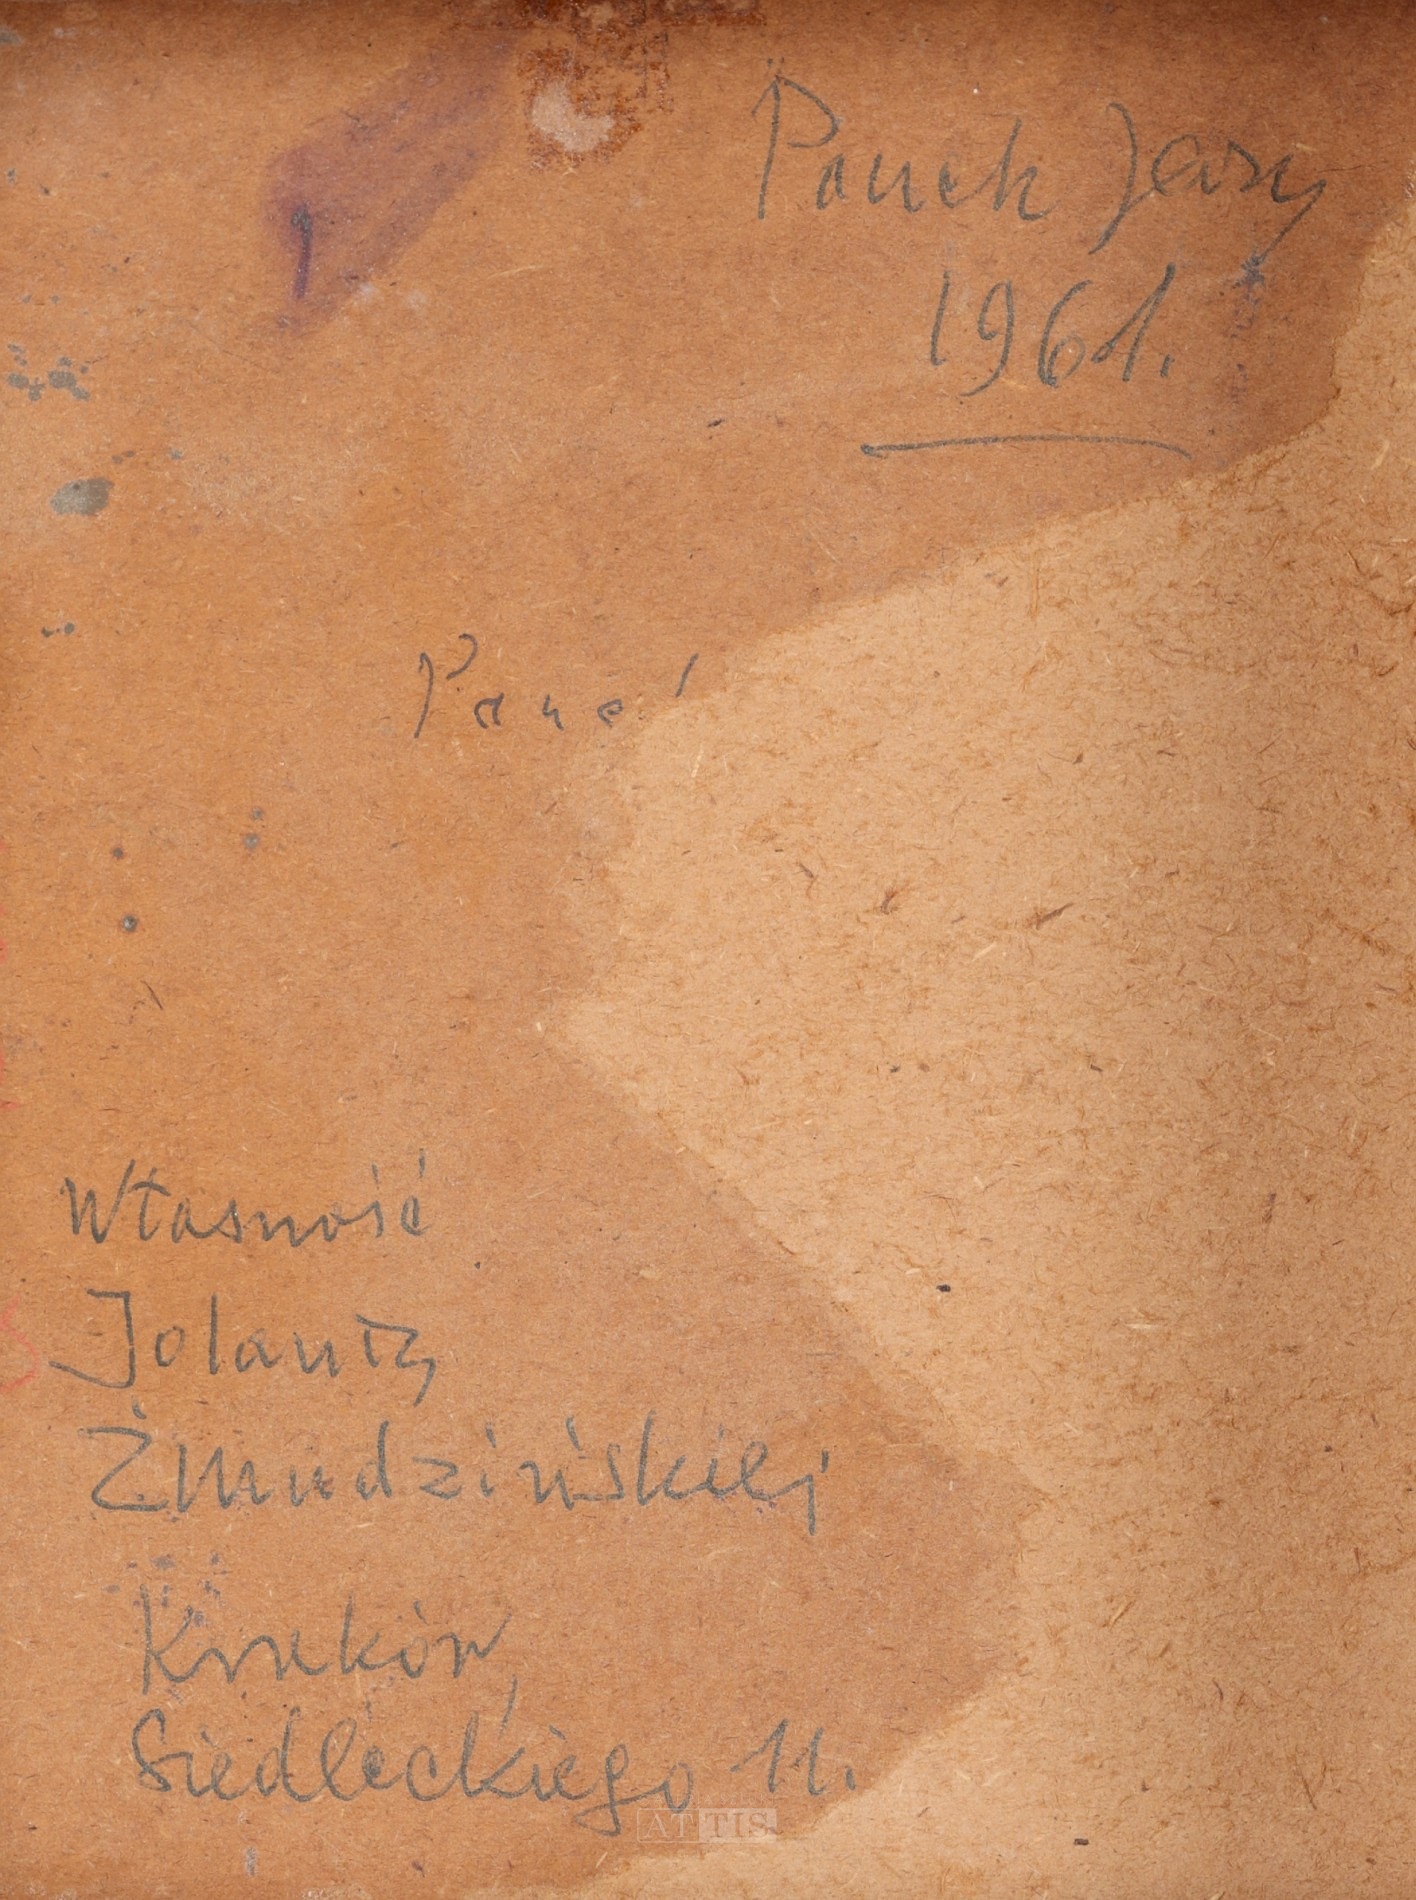 Panek Jerzy
1961.
Pane
Własność
Jolanty
Żmudzińskiej
Kraków,
Siedleckiego 11.
ATTIS